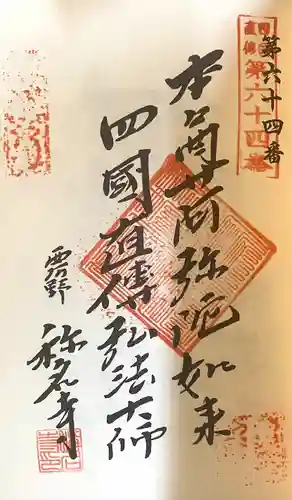 第六十四番
四国
直傳
第六十四番
本尊阿弥陀如来
四國直傳弘法大師
雲野
称名寺